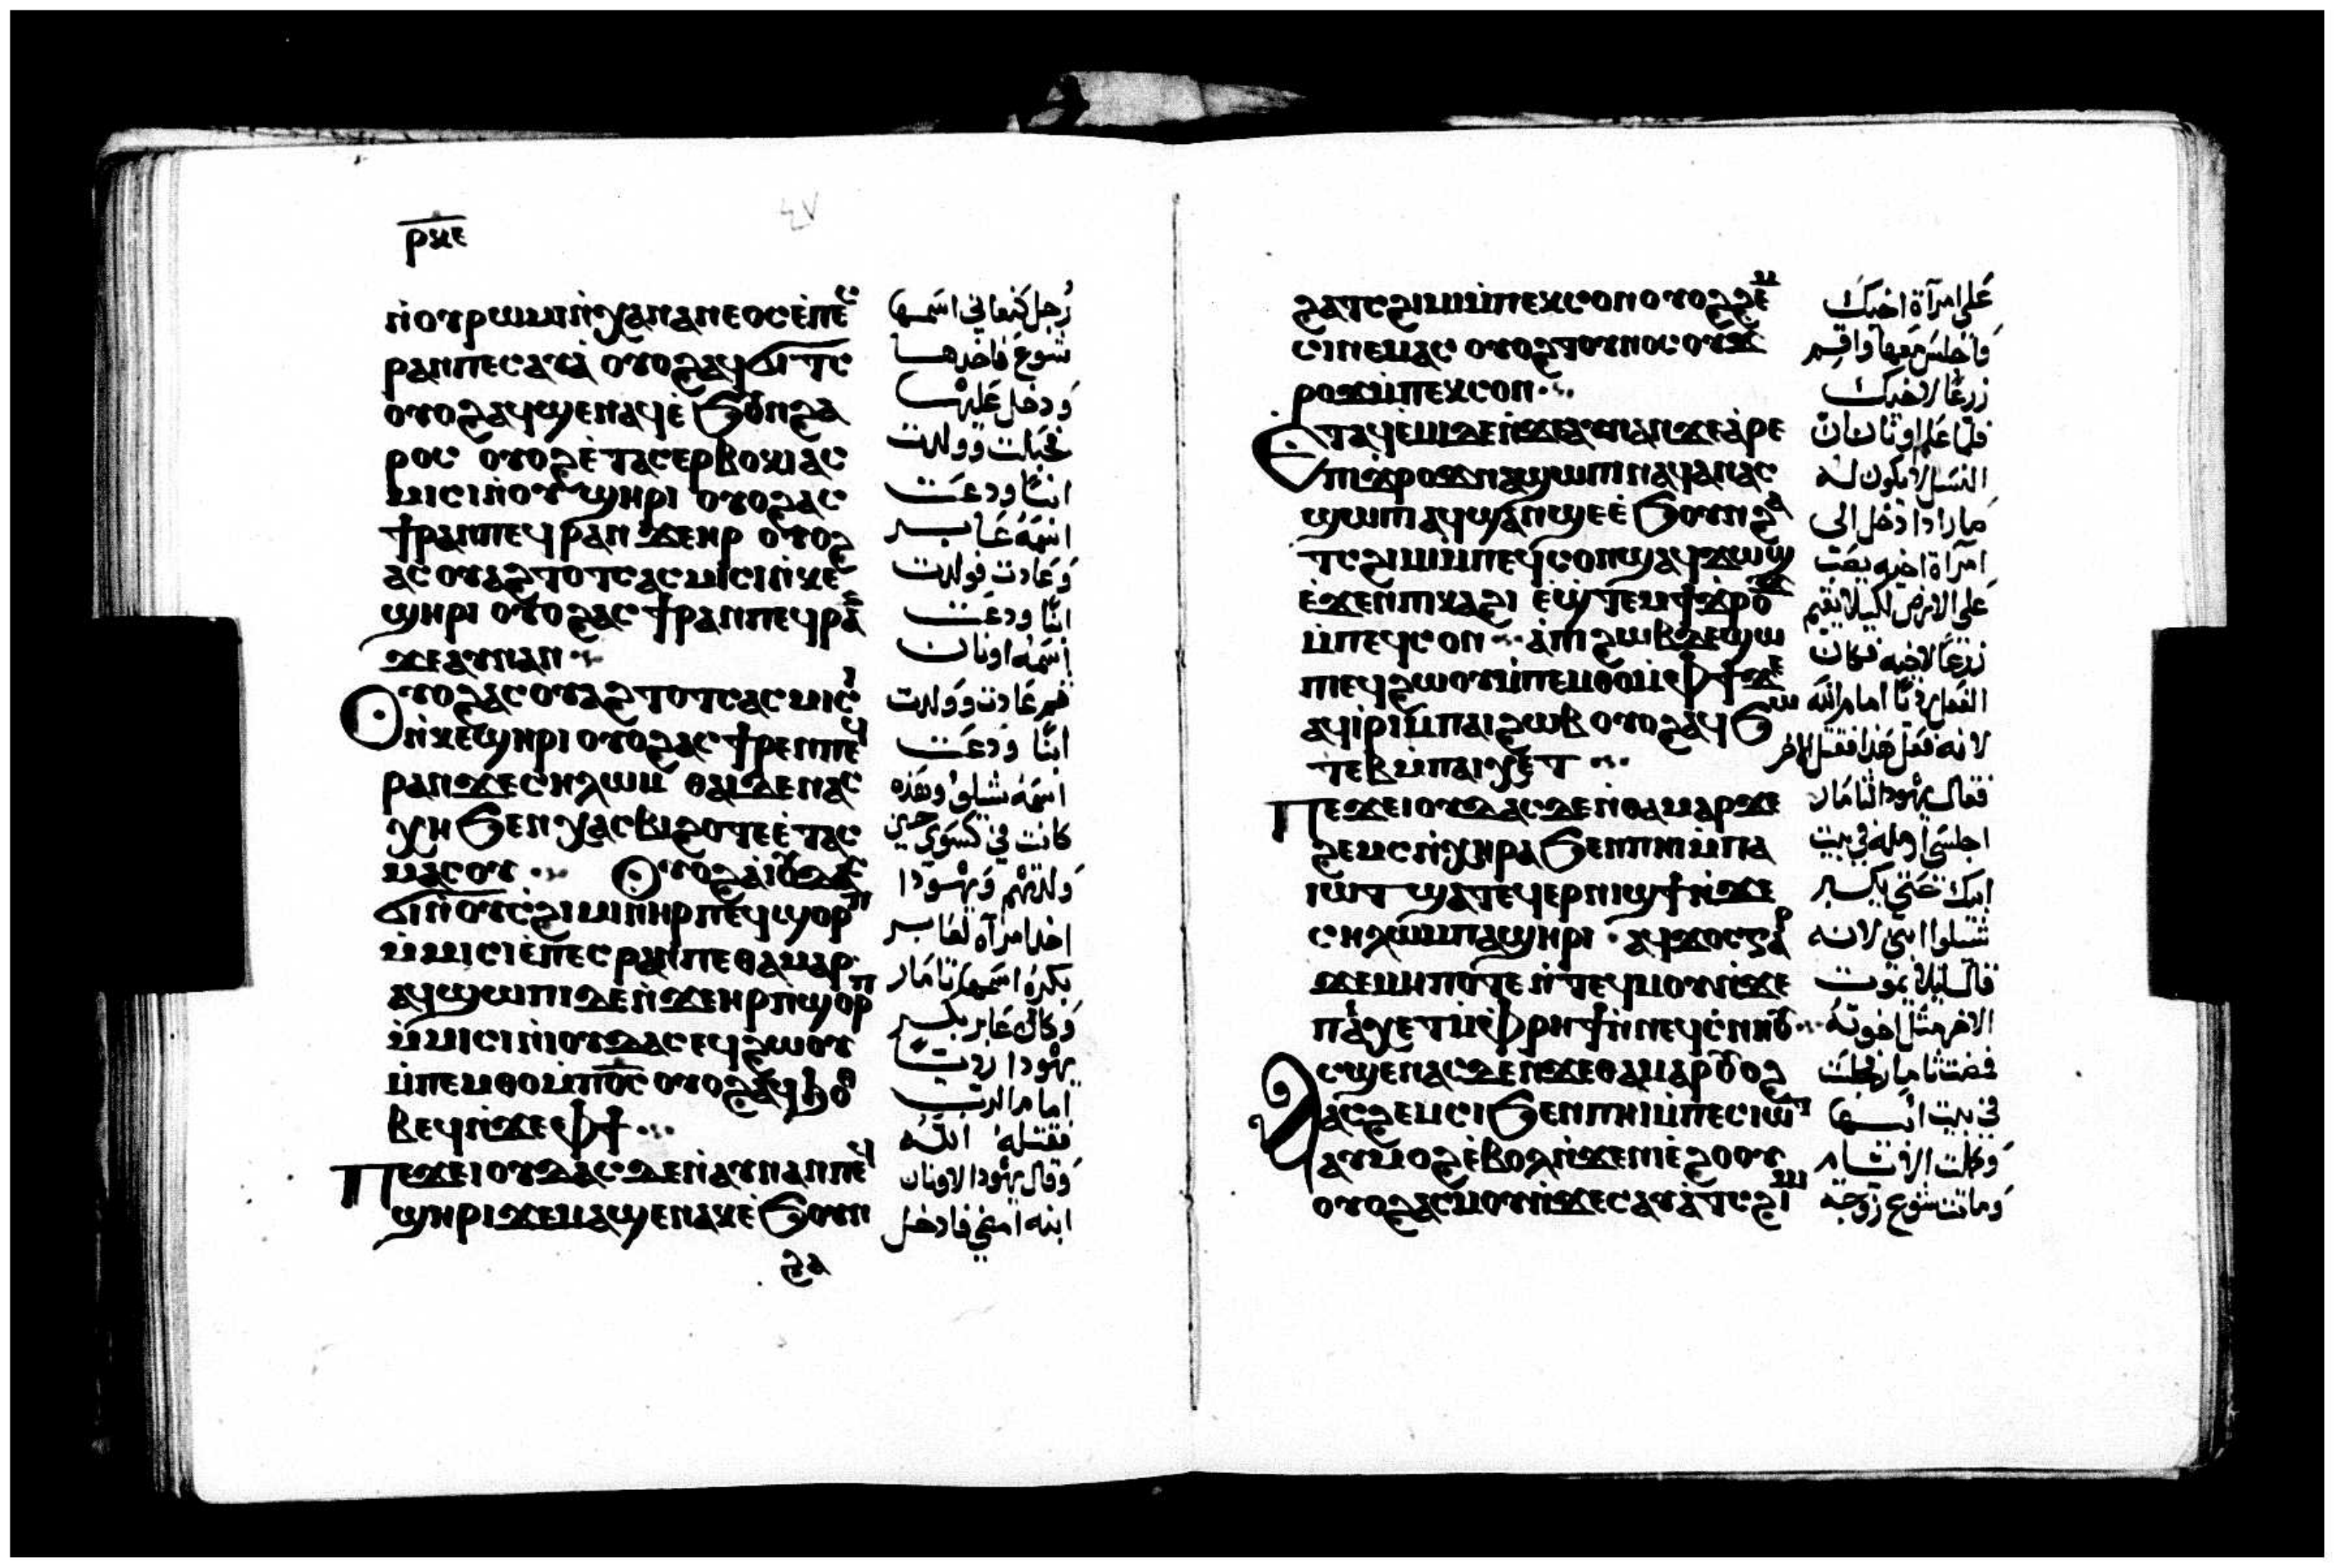 ⲣⲝⲉ
ⲛ̇ⲟⲩⲣⲱⲙⲓⲛ̇ⲭⲁⲛⲁⲛⲉⲟⲥⲉ̇ⲡⲉⲥ
ⲣⲁⲛⲡⲉⲥⲁⲩⲁ̇ ⲟⲩⲟϩⲁϥϭⲓⲧⲥ
ⲟⲩⲟϩⲁϥϣⲉⲛⲁϥⲉ̇ϧⲟⲩⲛϩⲁ
ⲣⲟⲥ ⲟⲩⲟϩⲉ̇ⲧⲁⲥⲉⲣⲃⲟⲕⲓⲁⲥ
ⲙⲓⲥⲓⲛ̇ⲟⲩϣⲏⲣⲓ ⲟⲩⲟϩⲁⲥ
ϯⲣⲁⲛⲡⲉϥⲣⲁⲛϫⲉⲏⲣ ⲟⲩⲟϩ
ⲁⲥⲟⲩⲁϩⲧⲟⲧⲥⲁⲥⲙⲓⲥⲓⲛ̇ⲕⲉ
ϣⲏⲣⲓ ⲟⲩⲟϩⲁⲥϯⲣⲁⲛⲡⲉϥⲣⲁⲛ
ϫⲉⲁⲩⲛⲁⲛ
ⲟⲩⲟϩⲁⲥⲟⲩⲁϩⲧⲟⲧⲥⲁⲥⲙⲓⲥⲓ
ⲛ̇ⲕⲉϣⲏⲣⲓ ⲟⲩⲟϩⲁⲥϯⲣⲉⲛⲡⲉϥ
ⲣⲁⲛϫⲉⲥⲏⲗⲱⲙ ⲑⲁⲓⲇⲉⲛⲁⲥ
ⲭⲏϧⲉⲛⲭⲁⲥⲃⲓϩⲟⲧⲉⲉ̇ⲧⲁⲥ
ⲙⲁⲥⲟⲩ ⲟⲩⲟϩⲁⲓⲟⲩⲇⲁⲥ
ϭⲓⲛ̇ⲟⲩⲥϩⲓⲙⲓⲛ̇ⲏⲣⲡⲉϥϣⲟⲣⲡ
ⲙ̇ⲙⲓⲥⲓⲉ̇ⲡⲉⲥⲣⲁⲛⲡⲉⲑⲁⲙⲁⲣ
ⲁϥϣⲱⲡⲓⲇⲉⲛ̇ϫⲉⲏⲣⲡϣⲟⲣⲡ
ⲙ̇ⲙⲓⲥⲓⲛ̇ⲓⲟⲩⲇⲁⲥⲉϥϩⲱⲟⲩ
ⲙ̇ⲡⲉⲙⲑⲟⲙ̇ⲡⲟ̅ⲥ̅ ⲟⲩⲟϩⲁϥϧⲟⲑ
ⲃⲉϥⲛ̇ϫⲉⲫϯ
ⲡⲉϫⲉⲓⲟⲩⲇⲁⲥⲇⲉⲛ̇ⲁⲩⲛⲁⲛⲡⲉϥ
ϣⲏⲣⲓϫⲉⲙⲁϣⲉⲛⲁⲕⲉ̇ϧⲟⲩⲛ
ϩⲁ
رجل كنعاني اسمها
شوع فاخذها
ودخل عليها
فحبلت وولدت
ابنًا ودعت
اسمه عابر
وعادت فولدت
ابنًا ودعت
اسمه اونان
ثم عادت وولدت
ابنًا ودعت
اسمه شيلوم وهذه
كانت في كسوي حين
ولدتهم ويهودا
اخذ امرآة لعابر
بكره اسمها تامار
وكان عابر بكر
يهودا ردي
امام الرب
فقتله الله
وقال يهودا لاونان
ابنه امضي فادخل
ϩⲁⲧⲥϩⲓⲙⲓⲙ̇ⲡⲉⲕⲥⲟⲛ ⲟⲩⲟϩϩⲉⲙ
ⲥⲓⲛⲉⲙⲁⲥ ⲟⲩⲟϩⲧⲟⲩⲛⲟⲥⲟⲩϫ
ⲣⲟϫⲙ̇ⲡⲉⲕⲥⲟⲛ
ⲉ̇ⲧⲁϥⲉ̇ⲙⲓⲇⲉⲛ̇ϫⲉⲁⲩⲛⲁⲛϫⲉⲁ̇ⲣⲉ
ⲡⲓϫⲣⲟϫⲛⲁϣⲱⲡⲓⲛⲁϥⲁⲛⲁⲥ
ϣⲱⲡⲓⲁϥϣⲁⲛϣⲉⲉ̇ϧⲟⲩⲛϩⲁ
ⲧⲥϩⲓⲙⲓⲙ̇ⲡⲉϥⲥⲟⲛϣⲁϥϫⲱϣ
ⲉ̇ϫⲉⲛⲡⲓⲕⲁϩⲓ ⲉ̇ϣⲧⲉⲙϯϫⲣⲟϫ
ⲙ̇ⲡⲉϥⲥⲟⲛ ⲁ̇ⲡⲓϩⲱⲃⲇⲉϣⲱ
ⲡⲓⲉϥϩⲱⲟⲩⲙ̇ⲡⲉⲙⲑⲟⲙ̇ⲫϯϫⲉ
ⲁϥⲓ̇ⲣⲓⲙ̇ⲡⲁⲓϩⲱⲃ ⲟⲩⲟϩⲁϥϧⲱ
ⲧⲉⲃⲙ̇ⲡⲁⲓⲭⲉⲧ
ⲡⲉϫⲉⲓⲟⲩⲇⲁⲥⲇⲉⲛ̇ⲑⲁⲙⲁⲣϫⲉ
ϩⲉⲙⲥⲓⲛ̇ⲭⲏⲣⲁϧⲉⲛⲡⲏⲓⲙ̇ⲡⲁ
ⲓⲱⲧ ϣⲁⲧⲉϥⲉⲣⲛⲓϣϯⲛ̇ϫⲉ
ⲥⲏⲗⲱⲙⲡⲁϣⲏⲣⲓ ⲁϥϫⲟⲥⲅⲁⲣ
ϫⲉⲙⲏⲡⲟⲧⲉ ⲛ̇ⲧⲉϥⲙⲟⲩⲛ̇ϫⲉ
ⲡⲁⲓⲭⲉⲧⲙ̇ⲫⲣⲏϯⲛ̇ⲛⲉϥⲥ̇ⲛⲏⲟⲩ
ⲁⲥϣⲉⲛⲁⲥⲇⲉⲛ̇ϫⲉⲑⲁⲙⲁⲣⲟⲩⲟϩ
ⲁⲥϩⲉⲙⲥⲓϧⲉⲛⲡⲏⲓⲙ̇ⲡⲉⲥⲓⲱⲧ
ⲁⲩⲙⲟϩⲉ̇ⲃⲟⲗⲛ̇ϫⲉⲛⲓⲉ̇ϩⲟⲟⲩ
ⲟⲩⲟϩⲁⲥⲙⲟⲩⲛ̇ϫⲉⲥⲁⲩⲁ̇ⲧⲥϩⲓⲙⲓ
علي امرآة اخيك
فاجلس معها واقيم
زرعًا لاخيك
فلما علم اونان ان
النسل لا يكون له
صار اذا دخل الى
امرآة اخيه يصب
علي الارض لكيلا يقيم
زرعًا لاخيه فكان
الفعل رديًا امام الله
لانه فعل هذا فقتل الاخر
فقال يهودا لثامار
اجلسي ارمله في بيت
ابيك حتي يكبر
شيلوا ابني لانه
قال ليلا يموت
الاخر مثل اخوته
فمضت ثامار فجلست
في بيت ابيها
وكملت الايام
وماتت شوع زوجة